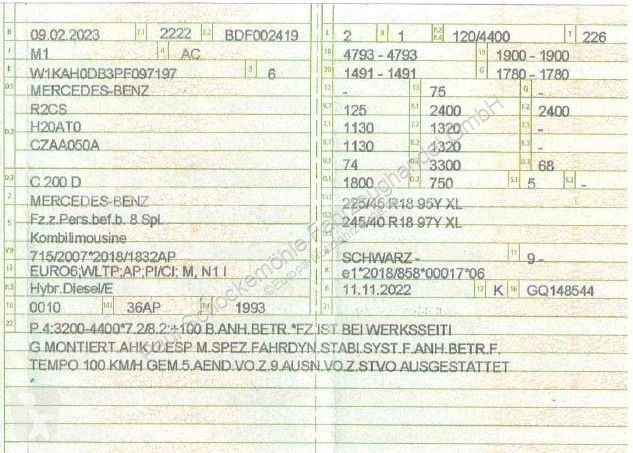 B 09.02.2023 2.1 2222 2.2 BDF002419
J M1 4 AC
E W1KAH0DB3PF097197 3 6
D.1 MERCEDES-BENZ
R2CS
D.2 H20AT0
CZAA050A
D.3 C 200 D
2 MERCEDES-BENZ
5 Fz.z.Pers.bef.b. 8 Spl.
Kombilimousine
V.9 715/2007*2018/1832AP
14 EURO6;WLTP;AP;PI/CI; M, N1 I
P.3 Hybr.Diesel/E
10 0010 14.1 36AP P.1 1993
L 2 9 1 P.2 P.4 120/4400 T 226
18 4793 - 4793 19 1900 - 1900
20 1491 - 1491 G 1780 - 1780
12 - 13 75 Q -
V.7 125 F.1 2400 F.2 2400
7.1 1130 7.2 1320 7.3 -
8.1 1130 8.2 1320 8.3 -
U.1 74 U.2 3300 U.3 68
O.1 1800 O.2 750 S.1 5 S.2 -
15.1 225/45 R18 95Y XL
15.2 245/40 R18 97Y XL
15.3 -
R SCHWARZ - 11 9 -
K e1*2018/858*00017*06
6 11.11.2022 17 K 16 GQ148544
21
22 P.4:3200-4400*7.2/8.2:+100 B.ANH.BETR.*FZ IST BEI WERKSSEITI
G.MONTIERT.AHK U.ESP M.SPEZ.FAHRDYN.STABI.SYST.F.ANH.BETR.F.
TEMPO 100 KM/H GEM.5.AEND.VO.Z.9.AUSN.VO.Z.STVO AUSGESTATTET
*
Schockemöhle Fahrzeughandel GmbH